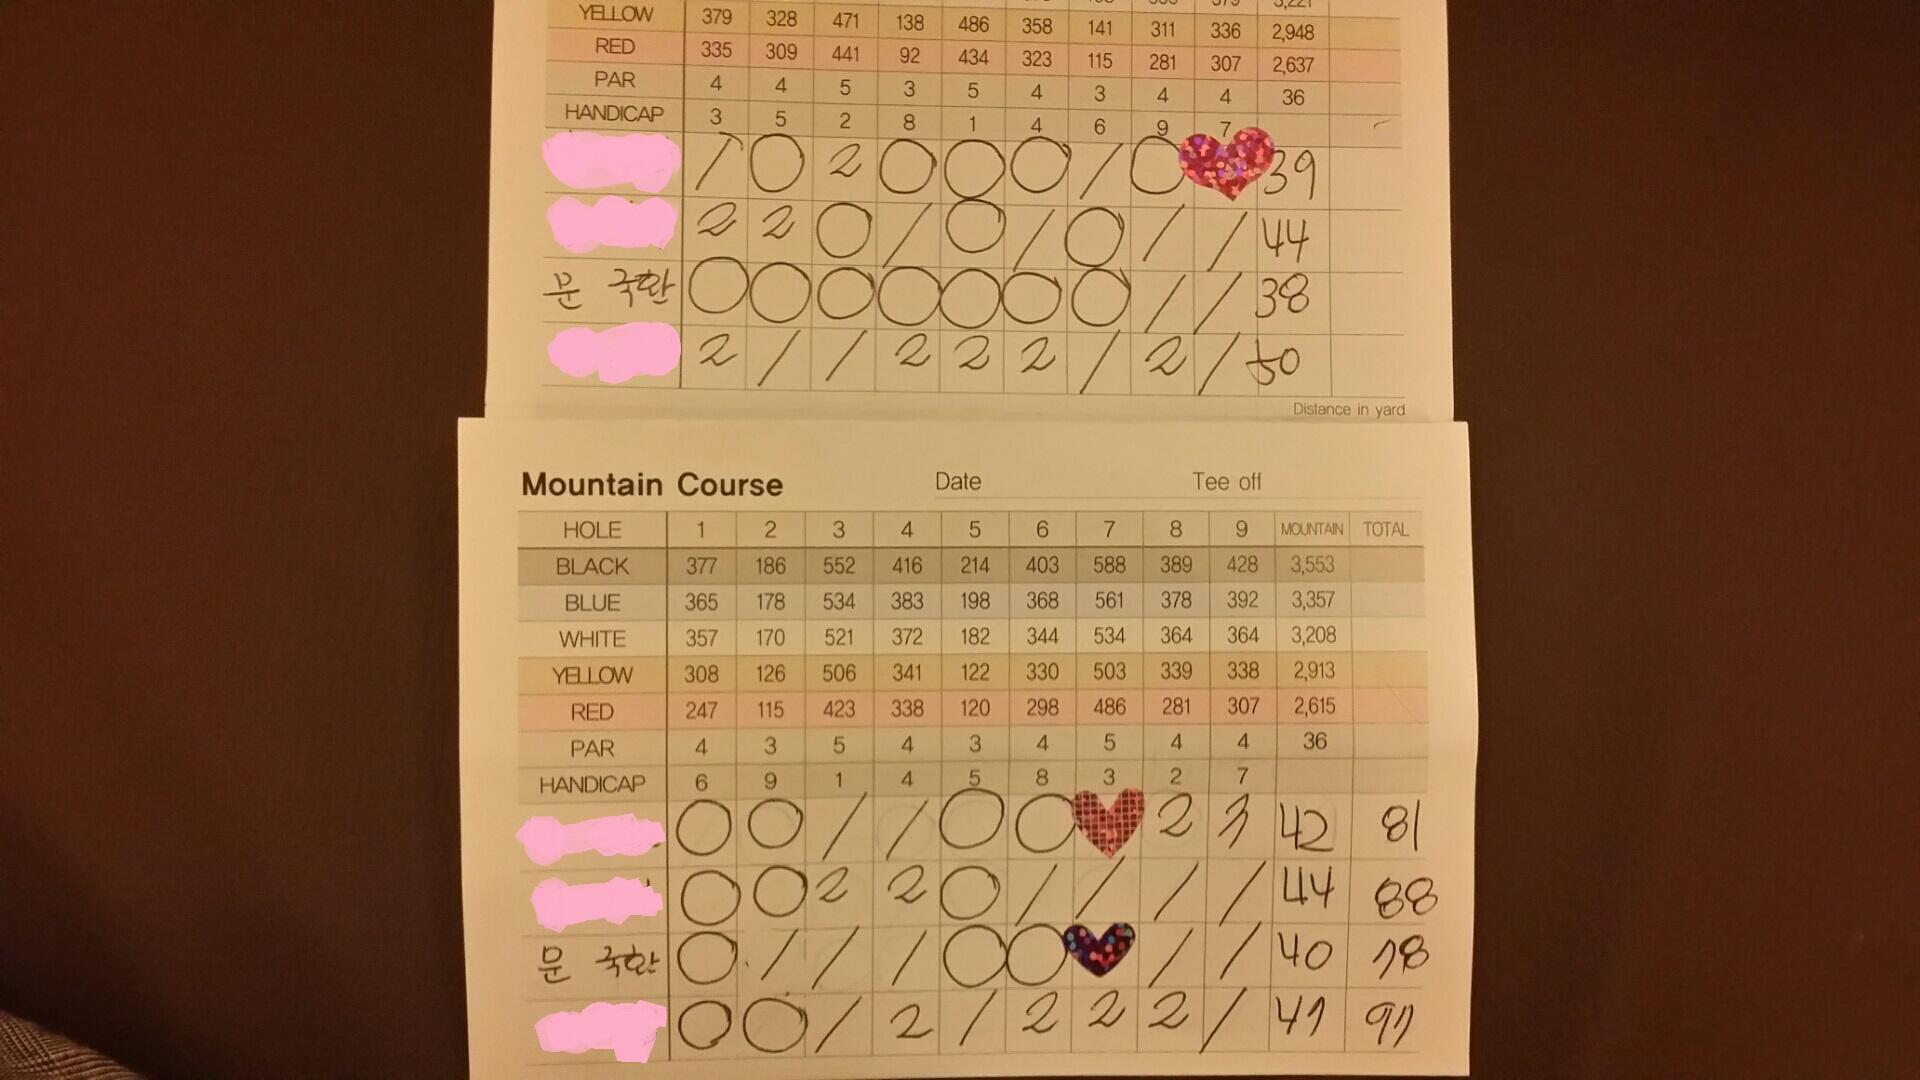 YELLOW 379 328 471 138 486 358 141 311 336 2,948
RED 335 309 441 92 434 323 115 281 307 2,637
PAR 4 4 5 3 5 4 3 4 4 36
HANDICAP 3 5 2 8 1 4 6 9 7
/ 0 2 0 0 0 / 0 39
2 2 0 / 0 / 0 / / 44
문 국환 0 0 0 0 0 0 0 / / 38
2 / / 2 2 2 / 2 / 50
Distance in yard
Mountain Course Date Tee off
HOLE 1 2 3 4 5 6 7 8 9 MOUNTAIN TOTAL
BLACK 377 186 552 416 214 403 588 389 428 3,553
BLUE 365 178 534 383 198 368 561 378 392 3,357
WHITE 357 170 521 372 182 344 534 364 364 3,208
YELLOW 308 126 506 341 122 330 503 339 338 2,913
RED 247 115 423 338 120 298 486 281 307 2,615
PAR 4 3 5 4 3 4 5 4 4 36
HANDICAP 6 9 1 4 5 8 3 2 7
0 0 / / 0 0 2 3 42 81
0 0 2 2 0 / / / / 44 88
문 국환 0 / / / 0 0 / / 40 78
0 0 / 2 / 2 2 2 / 47 97